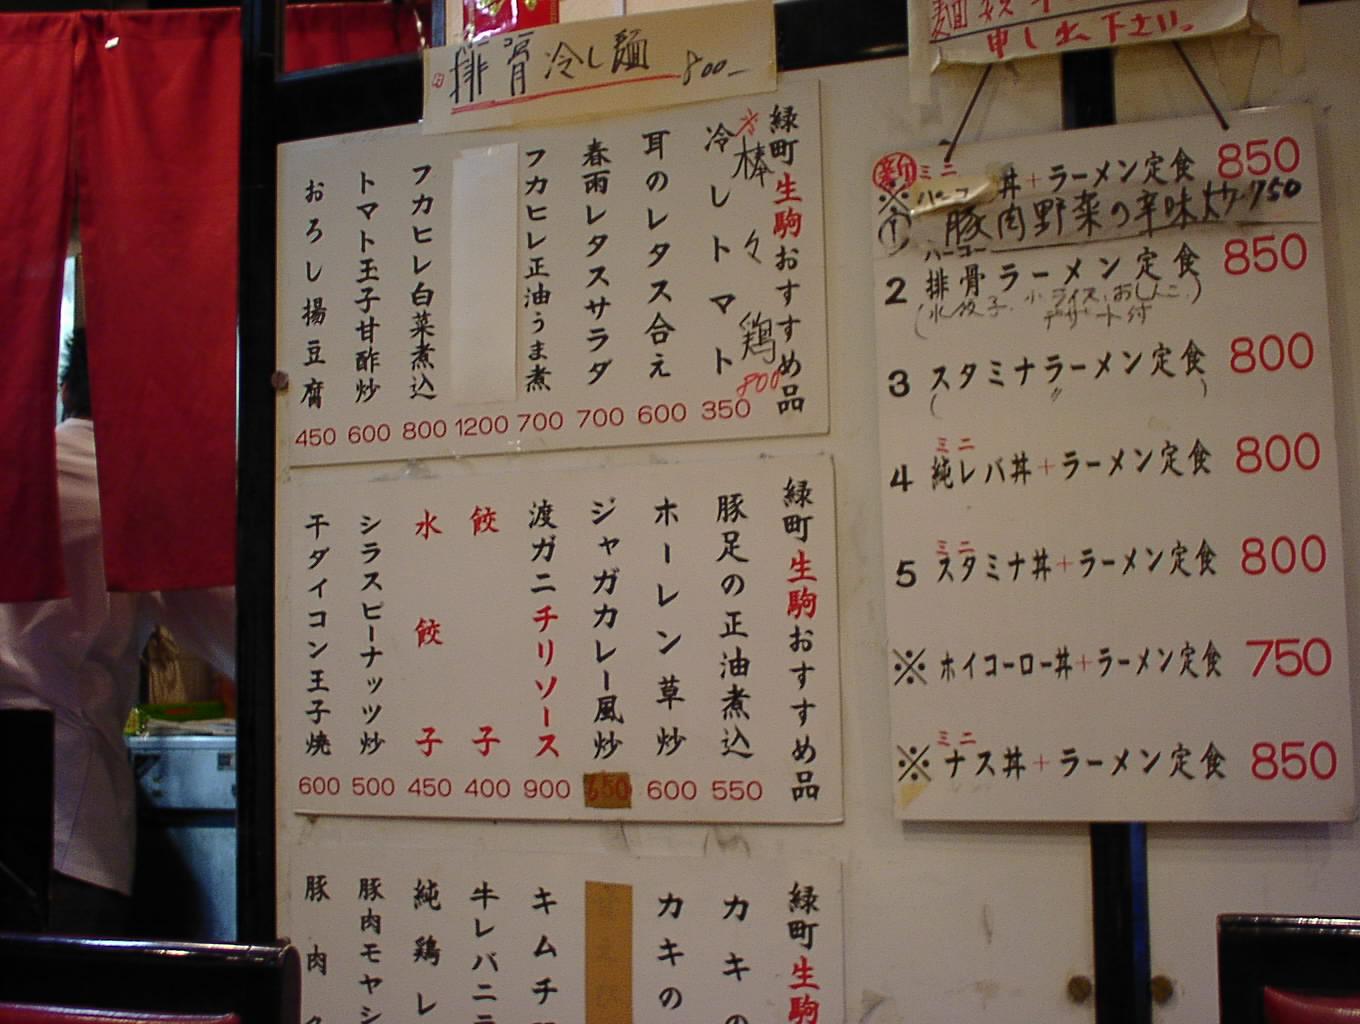 排骨冷し麺 800-
緑町生駒おすすめ品
棒々鶏 800
冷しトマト 350
耳のレタス合え 600
春雨レタスサラダ 700
フカヒレ正油うま煮 700
1200
フカヒレ白菜煮込 800
トマト玉子甘酢炒 600
おろし揚豆腐 450
緑町生駒おすすめ品
豚足の正油煮込 550
ホーレン草炒 600
ジャガカレー風炒 650
渡ガニチリソース 900
餃子 400
水餃子 450
シラスピーナッツ炒 500
干ダイコン玉子焼 600
緑町生駒
カキ
カキの
キムチ
牛レバニ
純鶏レ
豚肉モヤシ
豚肉
申し出下さい。
新 ミニ
丼+ラーメン定食 850
※① 豚肉野菜の辛味炒 750
パーコー
2 排骨ラーメン定食 850
(水餃子・小ライス・おしんこ・
デザート付)
3 スタミナラーメン定食 800
( 〃 )
ミニ
4 純レバ丼+ラーメン定食 800
ミニ
5 スタミナ丼+ラーメン定食 800
※ ホイコーロー丼+ラーメン定食 750
ミニ
※ ナス丼+ラーメン定食 850